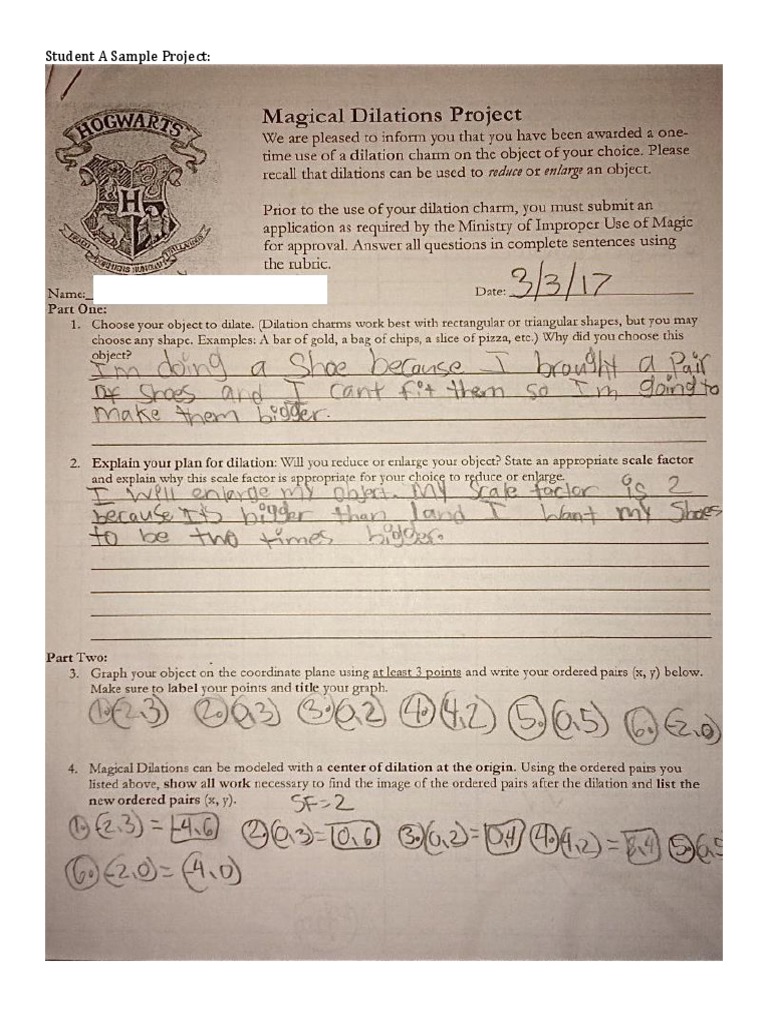 Student A Sample Project:
HOGWARTS
H
Magical Dilations Project
We are pleased to inform you that you have been awarded a one-
time use of a dilation charm on the object of your choice. Please
recall that dilations can be used to reduce or enlarge an object.
Prior to the use of your dilation charm, you must submit an
application as required by the Ministry of Improper Use of Magic
for approval. Answer all questions in complete sentences using
the rubric.
Name:_ Date: 3/3/17
Part One:
1. Choose your object to dilate. (Dilation charms work best with rectangular or triangular shapes, but you may
choose any shape. Examples: A bar of gold, a bag of chips, a slice of pizza, etc.) Why did you choose this
object?
I'm doing a Shoe because I brought a Pair
of shoes and I cant fit them so I'm going to
make them bigger.
2. Explain your plan for dilation: Will you reduce or enlarge your object? State an appropriate scale factor
and explain why this scale factor is appropriate for your choice to reduce or enlarge.
I will enlarge my object. My Scale factor is 2
because It's bigger than 1 and I want my Shoes
to be two times bigger.
Part Two:
3. Graph your object on the coordinate plane using at least 3 points and write your ordered pairs (x, y) below.
Make sure to label your points and title your graph.
1. (-2,3) 2. (0,3) 3. (0,2) 4. (4,2) 5. (0,5) 6. (-2,0)
4. Magical Dilations can be modeled with a center of dilation at the origin. Using the ordered pairs you
listed above, show all work necessary to find the image of the ordered pairs after the dilation and list the
new ordered pairs (x, y). SF=2
1. (-2,3) = -4,6 2. (0,3) = 0,6 3. (0,2) = 0,4 4. (4,2) = 8,4 5. (0,5
6. (-2,0) = (-4,0)